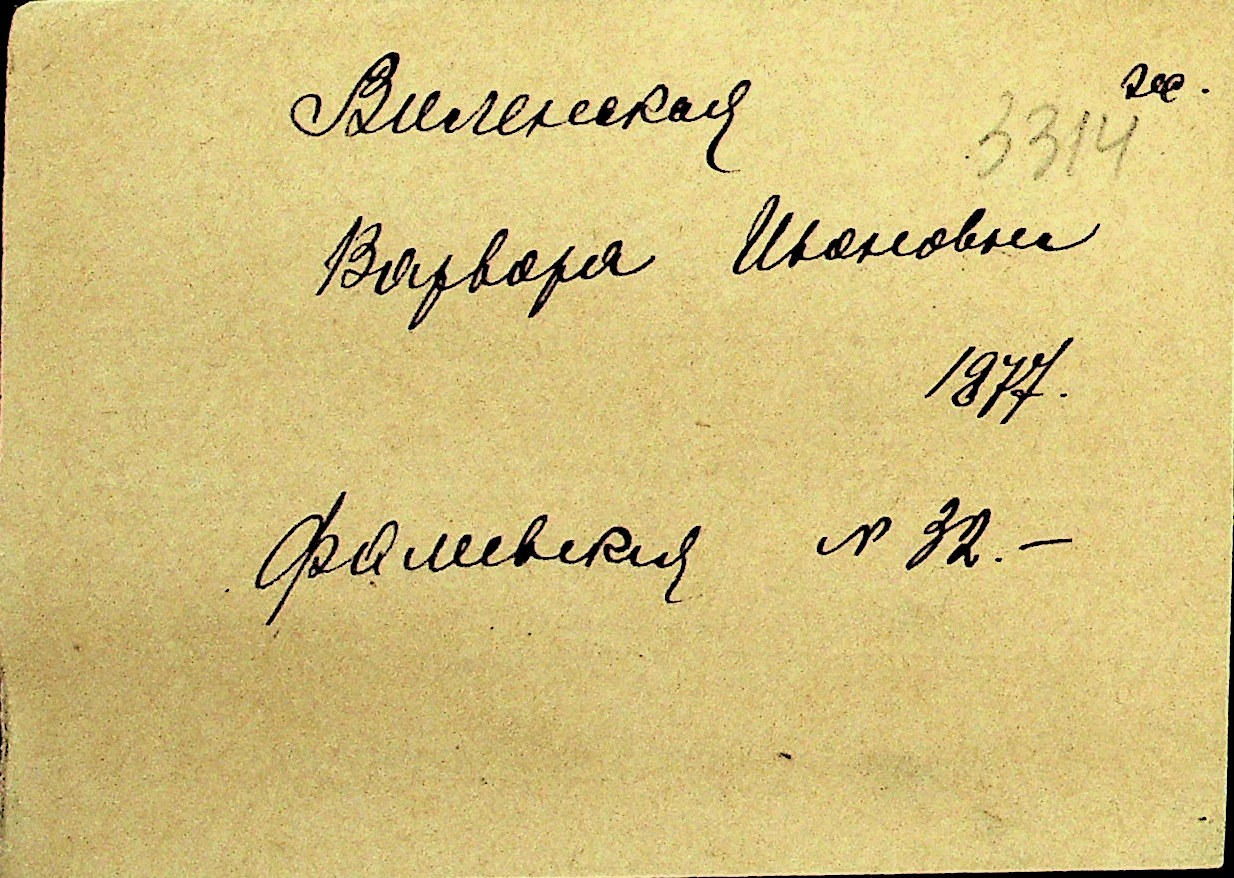 Виленская ж.
3314
Варвара Ивановна
1877.
Фалеевская № 32.—